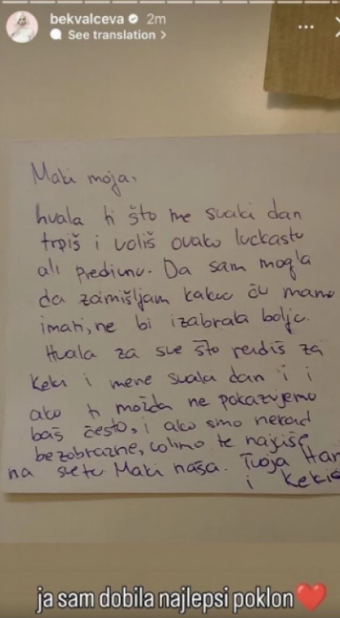 bekvalceva 2m
See translation >
Maki moja,
hvala ti što me svaki dan
trpiš i voliš ovako luckastu
ali predivnu. Da sam mogla
da zamišljam kakvu ću mamu
imati, ne bi izabrala bolje.
Hvala za sve što radiš za
Keki i mene svaki dan i i
ako ti možda ne pokazujemo
baš često, i ako smo nekad
bezobrazne, volimo te najviše
na svetu Maki naša. Tvoja
i Kekic
ja sam dobila najlepsi poklon❤️